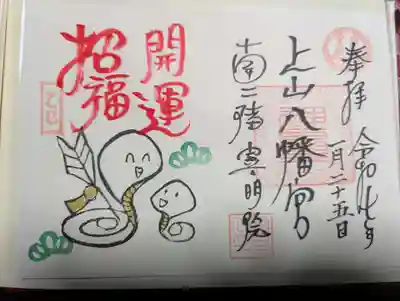 奉拝
令和七年
一月二十五日
上山八幡宮
南三陸
開運
招福